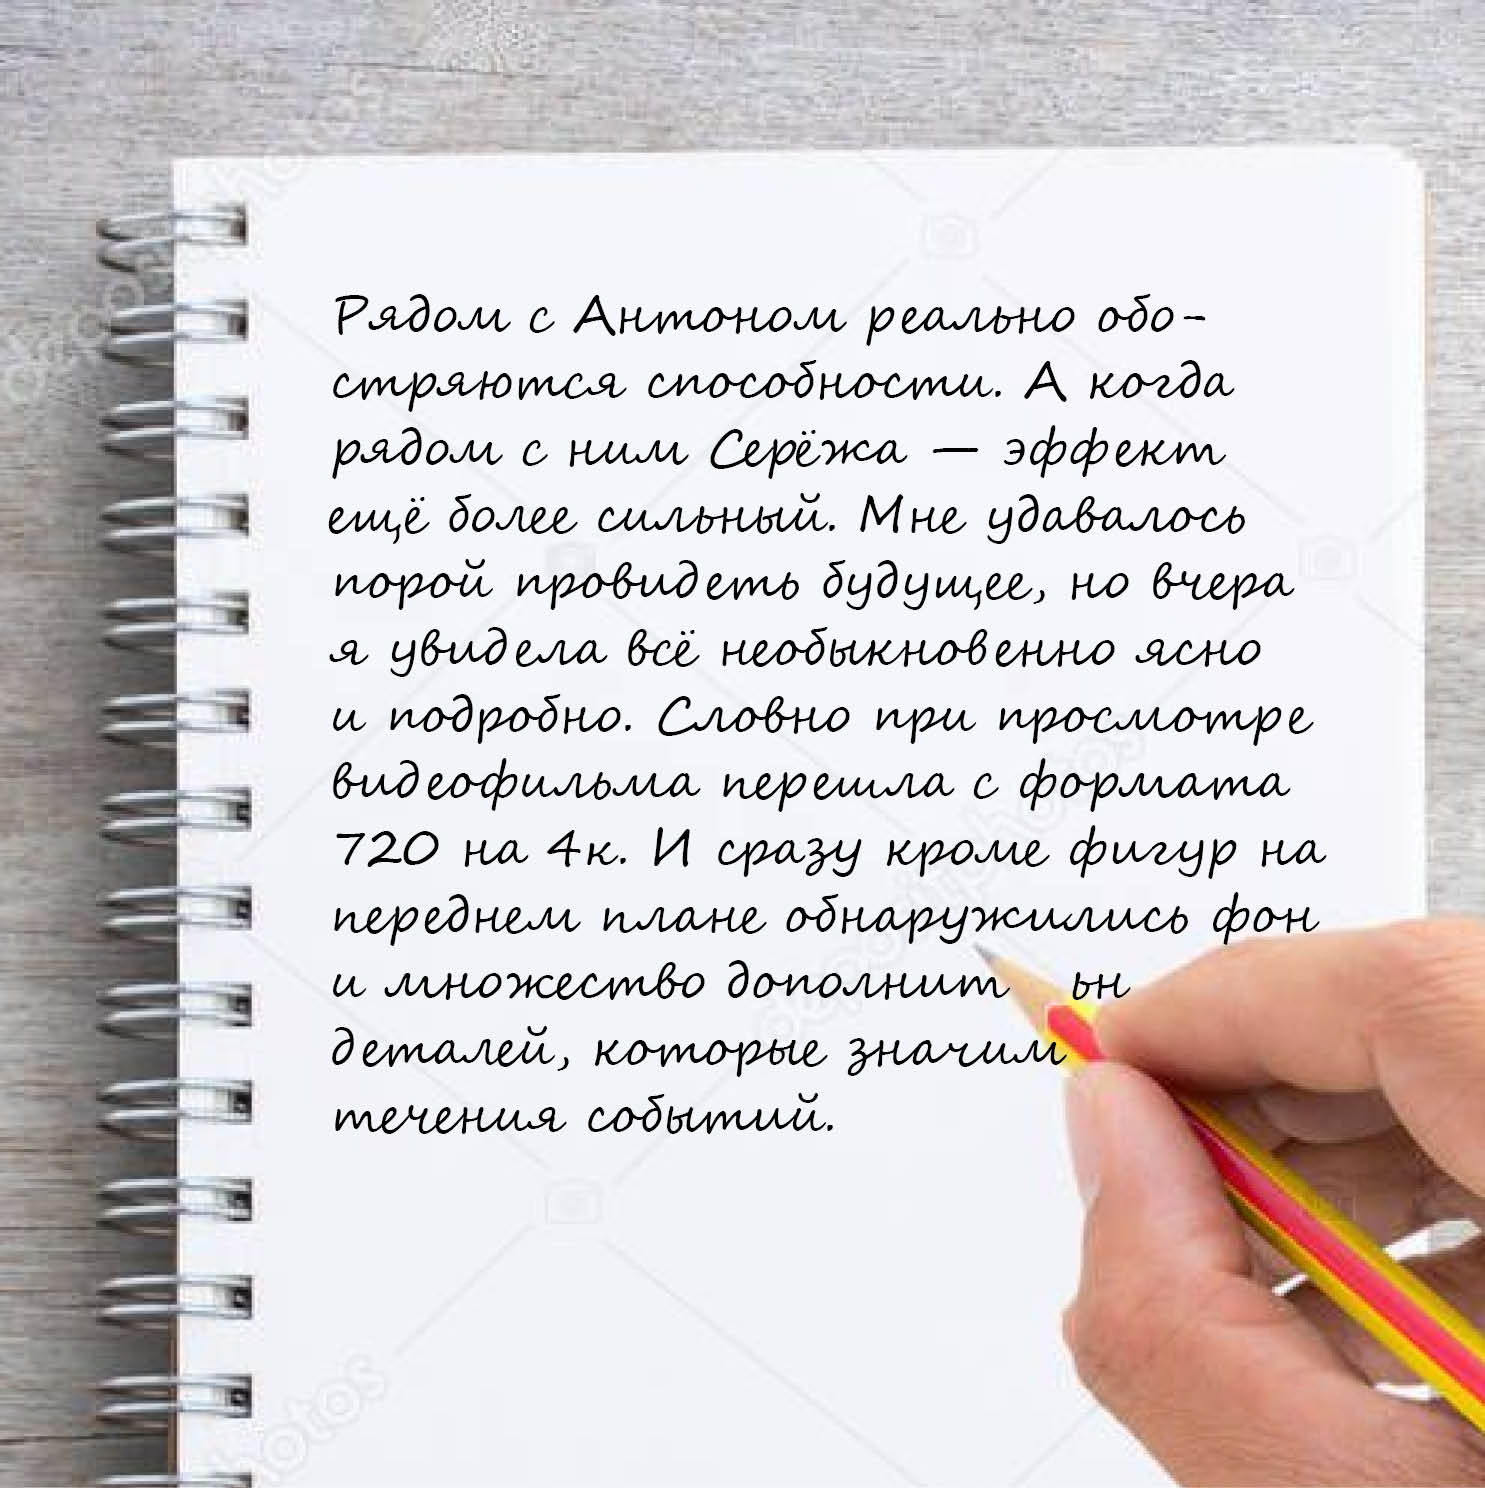 Рядом с Антоном реально обо-
стряются способности. А когда
рядом с ним Серёжа — эффект
ещё более сильный. Мне удавалось
порой провидеть будущее, но вчера
я увидела всё необыкновенно ясно
и подробно. Словно при просмотре
видеофильма перешла с формата
720 на 4к. И сразу кроме фигур на
переднем плане обнаружились фон
и множество
деталей, которые
течения событий.
depositphotos